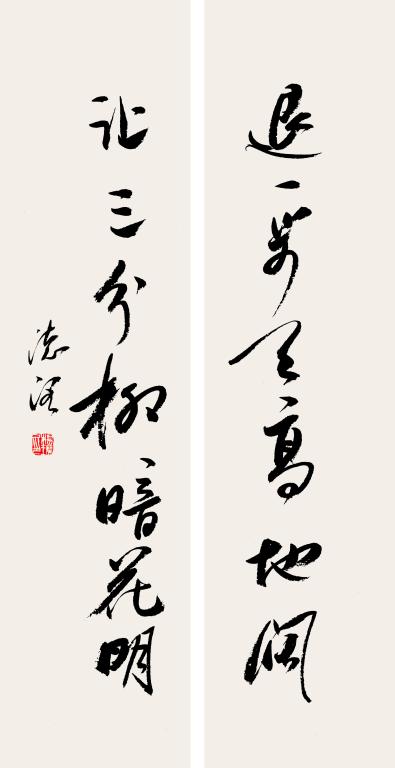 退一步天高地阔
让三分柳暗花明